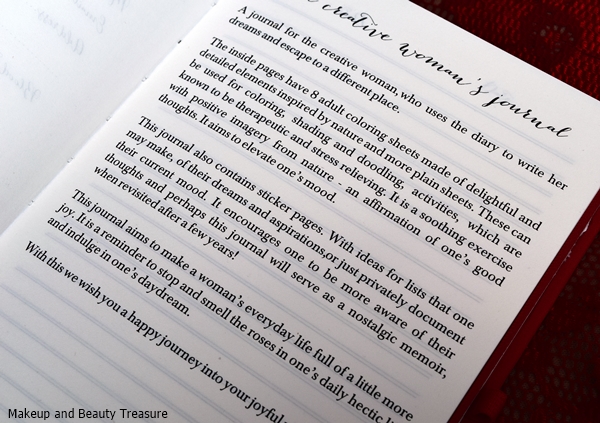 creative woman's journal
A journal for the creative woman, who uses the diary to write her
dreams and escape to a different place.
The inside pages have 8 adult coloring sheets made of delightful and
detailed elements inspired by nature and more plain sheets. These can
be used for coloring, shading and doodling, activities, which are
known to be therapeutic and stress relieving. It is a soothing exercise
with positive imagery from nature - an affirmation of one's good
thoughts. It aims to elevate one's mood.
This journal also contains sticker pages. With ideas for lists that one
may make, of their dreams and aspirations,or just privately document
their current mood. It encourages one to be more aware of their
thoughts and perhaps this journal will serve as a nostalgic memoir,
when revisited after a few years!
This journal aims to make a woman's everyday life full of a little more
joy. It is a reminder to stop and smell the roses in one's daily hectic
and indulge in one's daydream.
With this we wish you a happy journey into your joyful
Makeup and Beauty Treasure